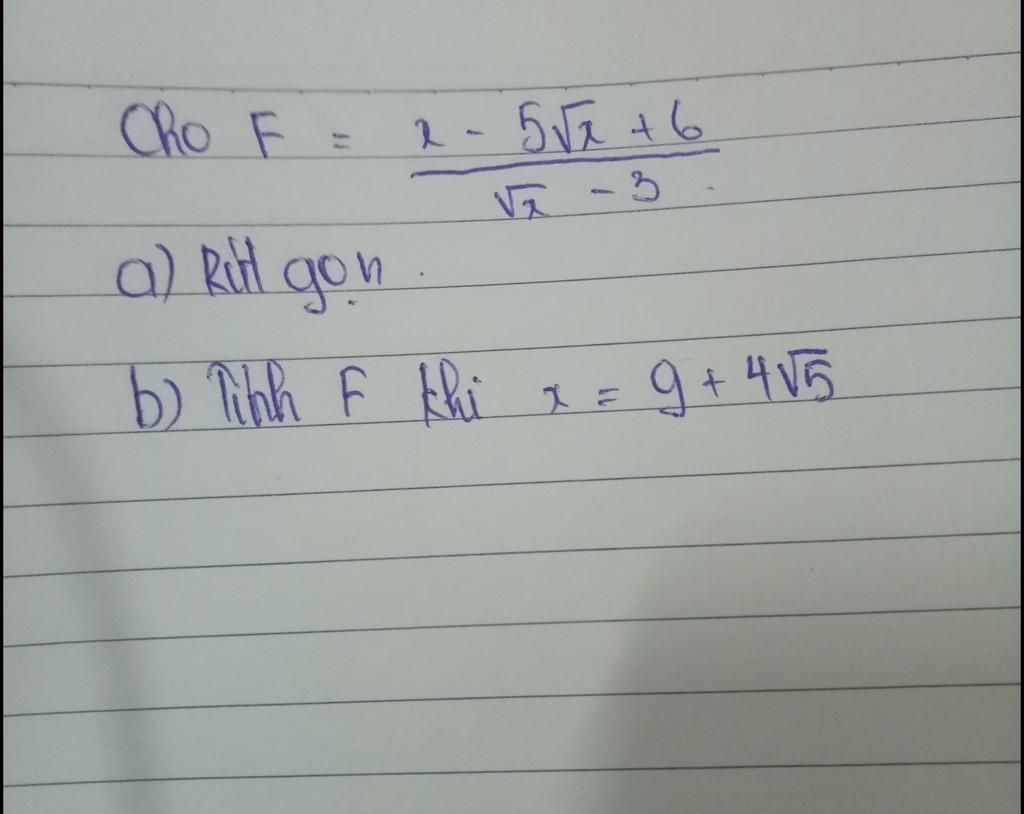 Cho F = x - 5√x + 6 / √x - 3
a) Rút gọn.
b) Tính F khi x = 9 + 4√5